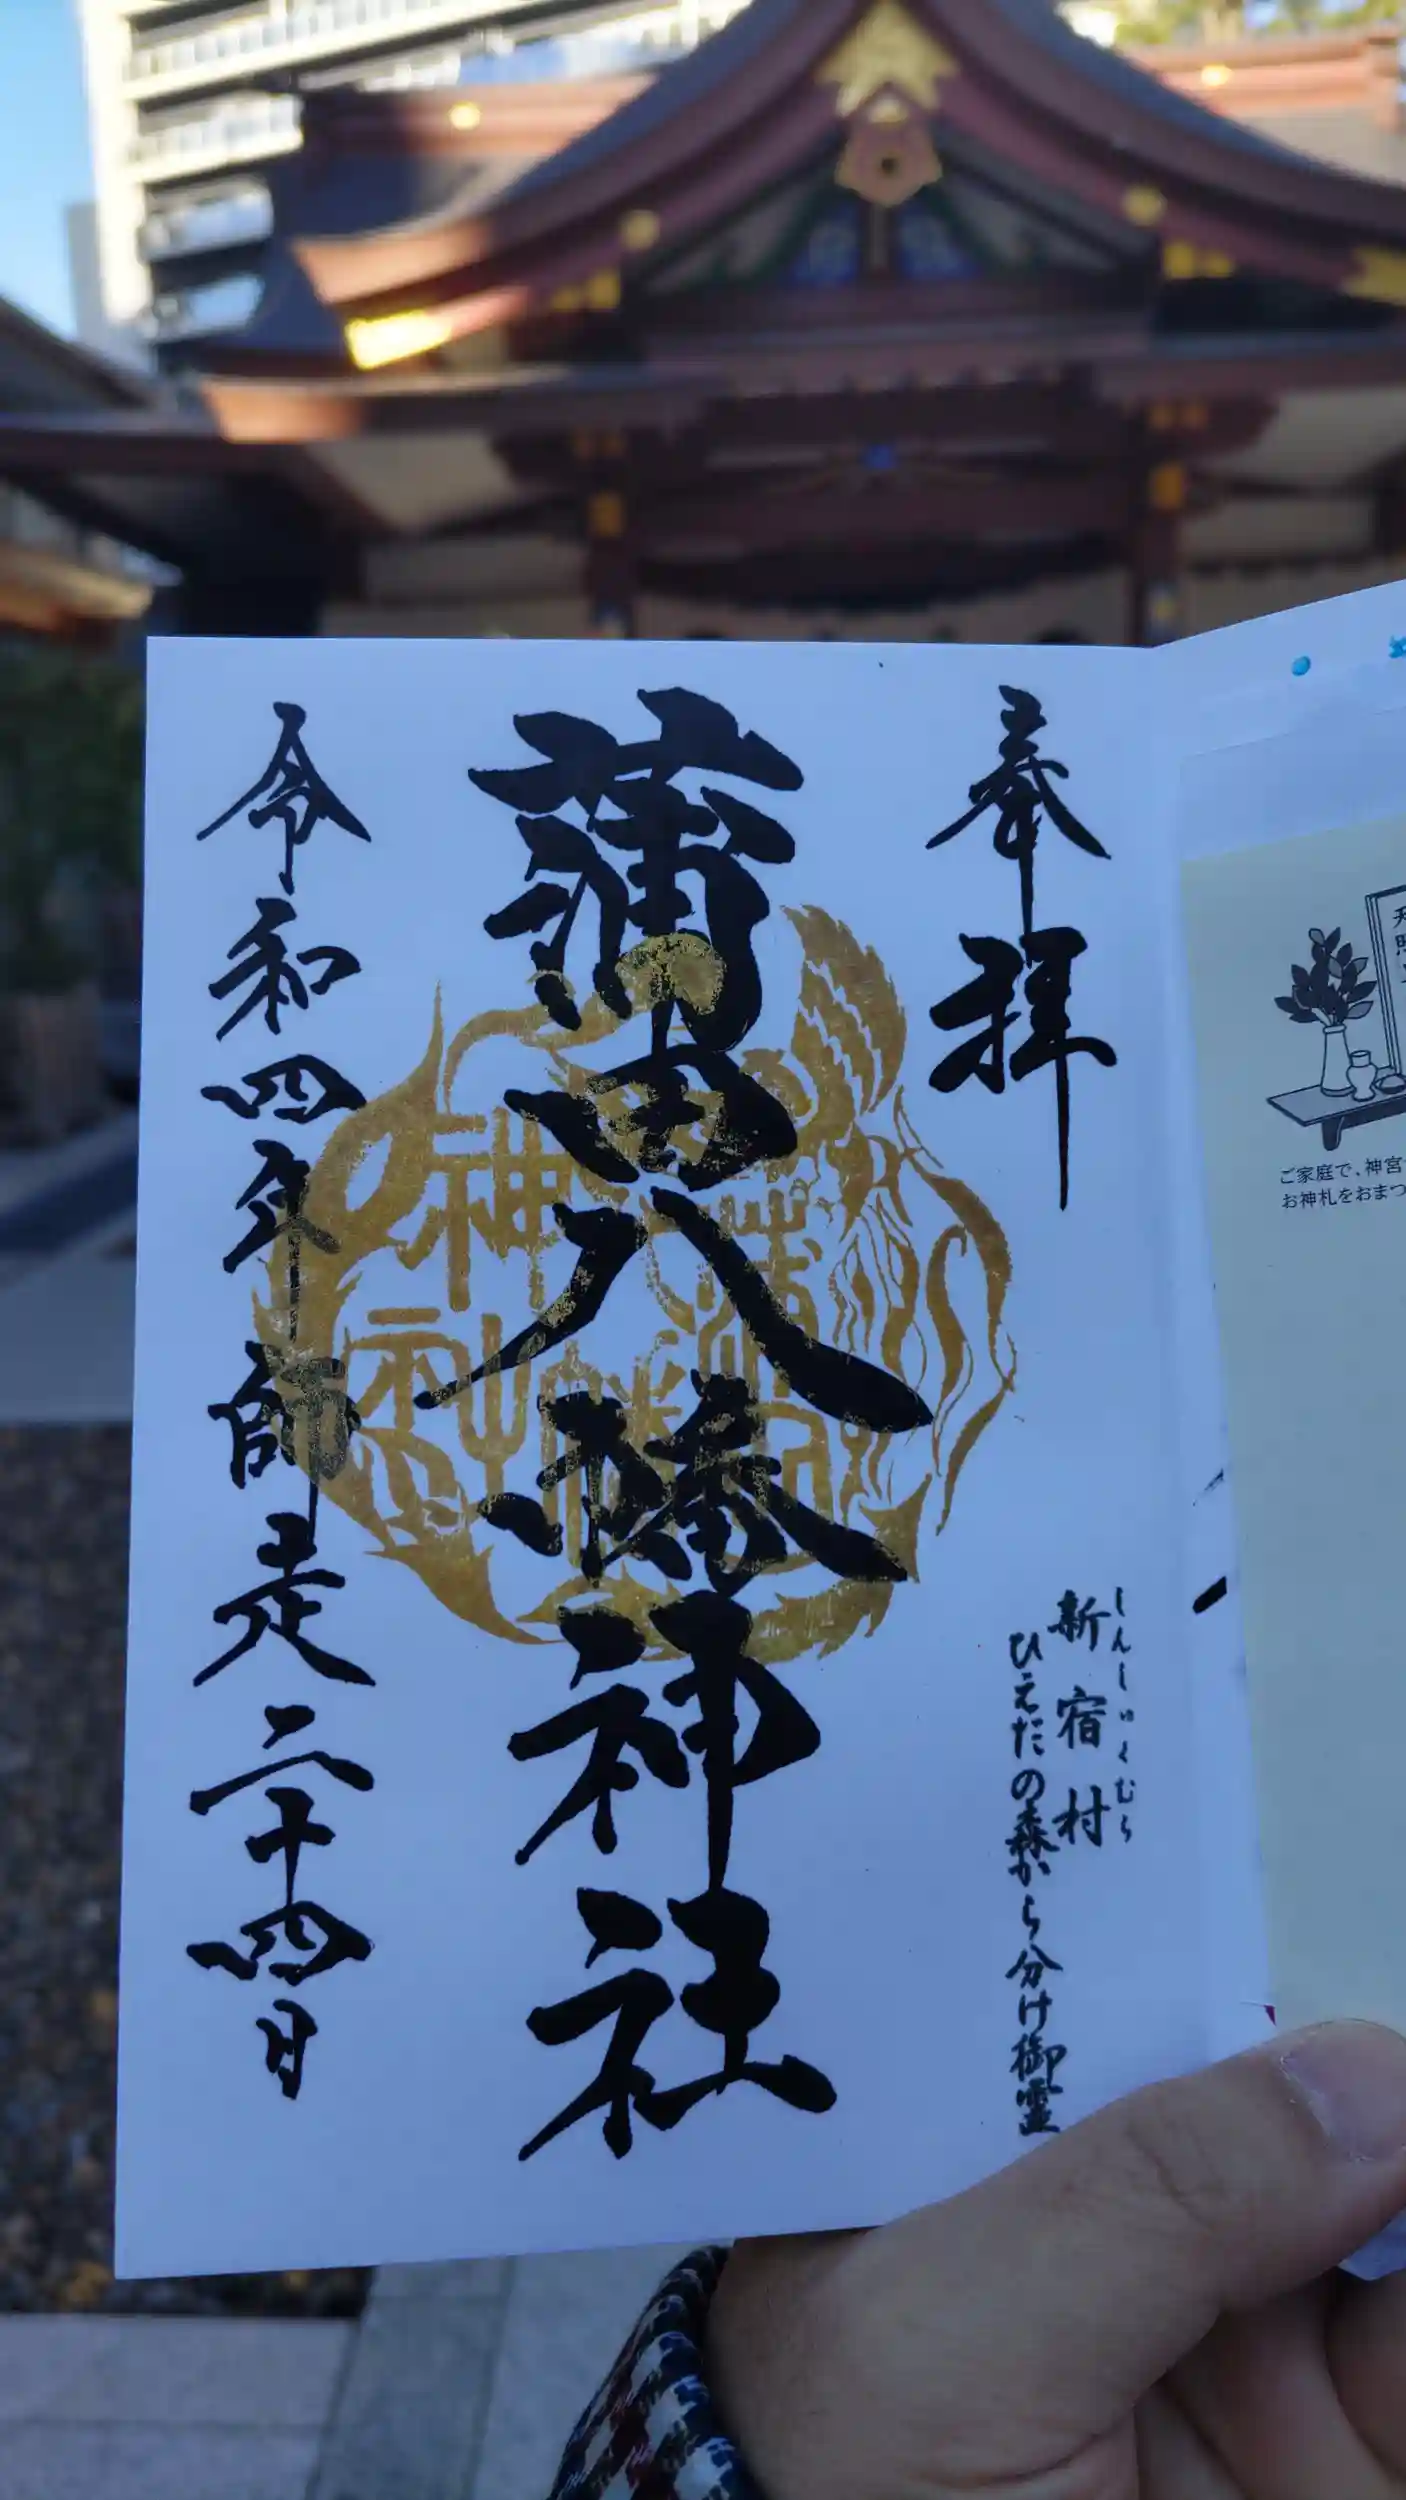 奉拝
しんしゅくむら
新宿村
ひえだの森から分け御霊
蒲田八幡神社
令和四年師走二十四日
蒲田八幡神社
ご家庭で、神宮
お神札をおまつ